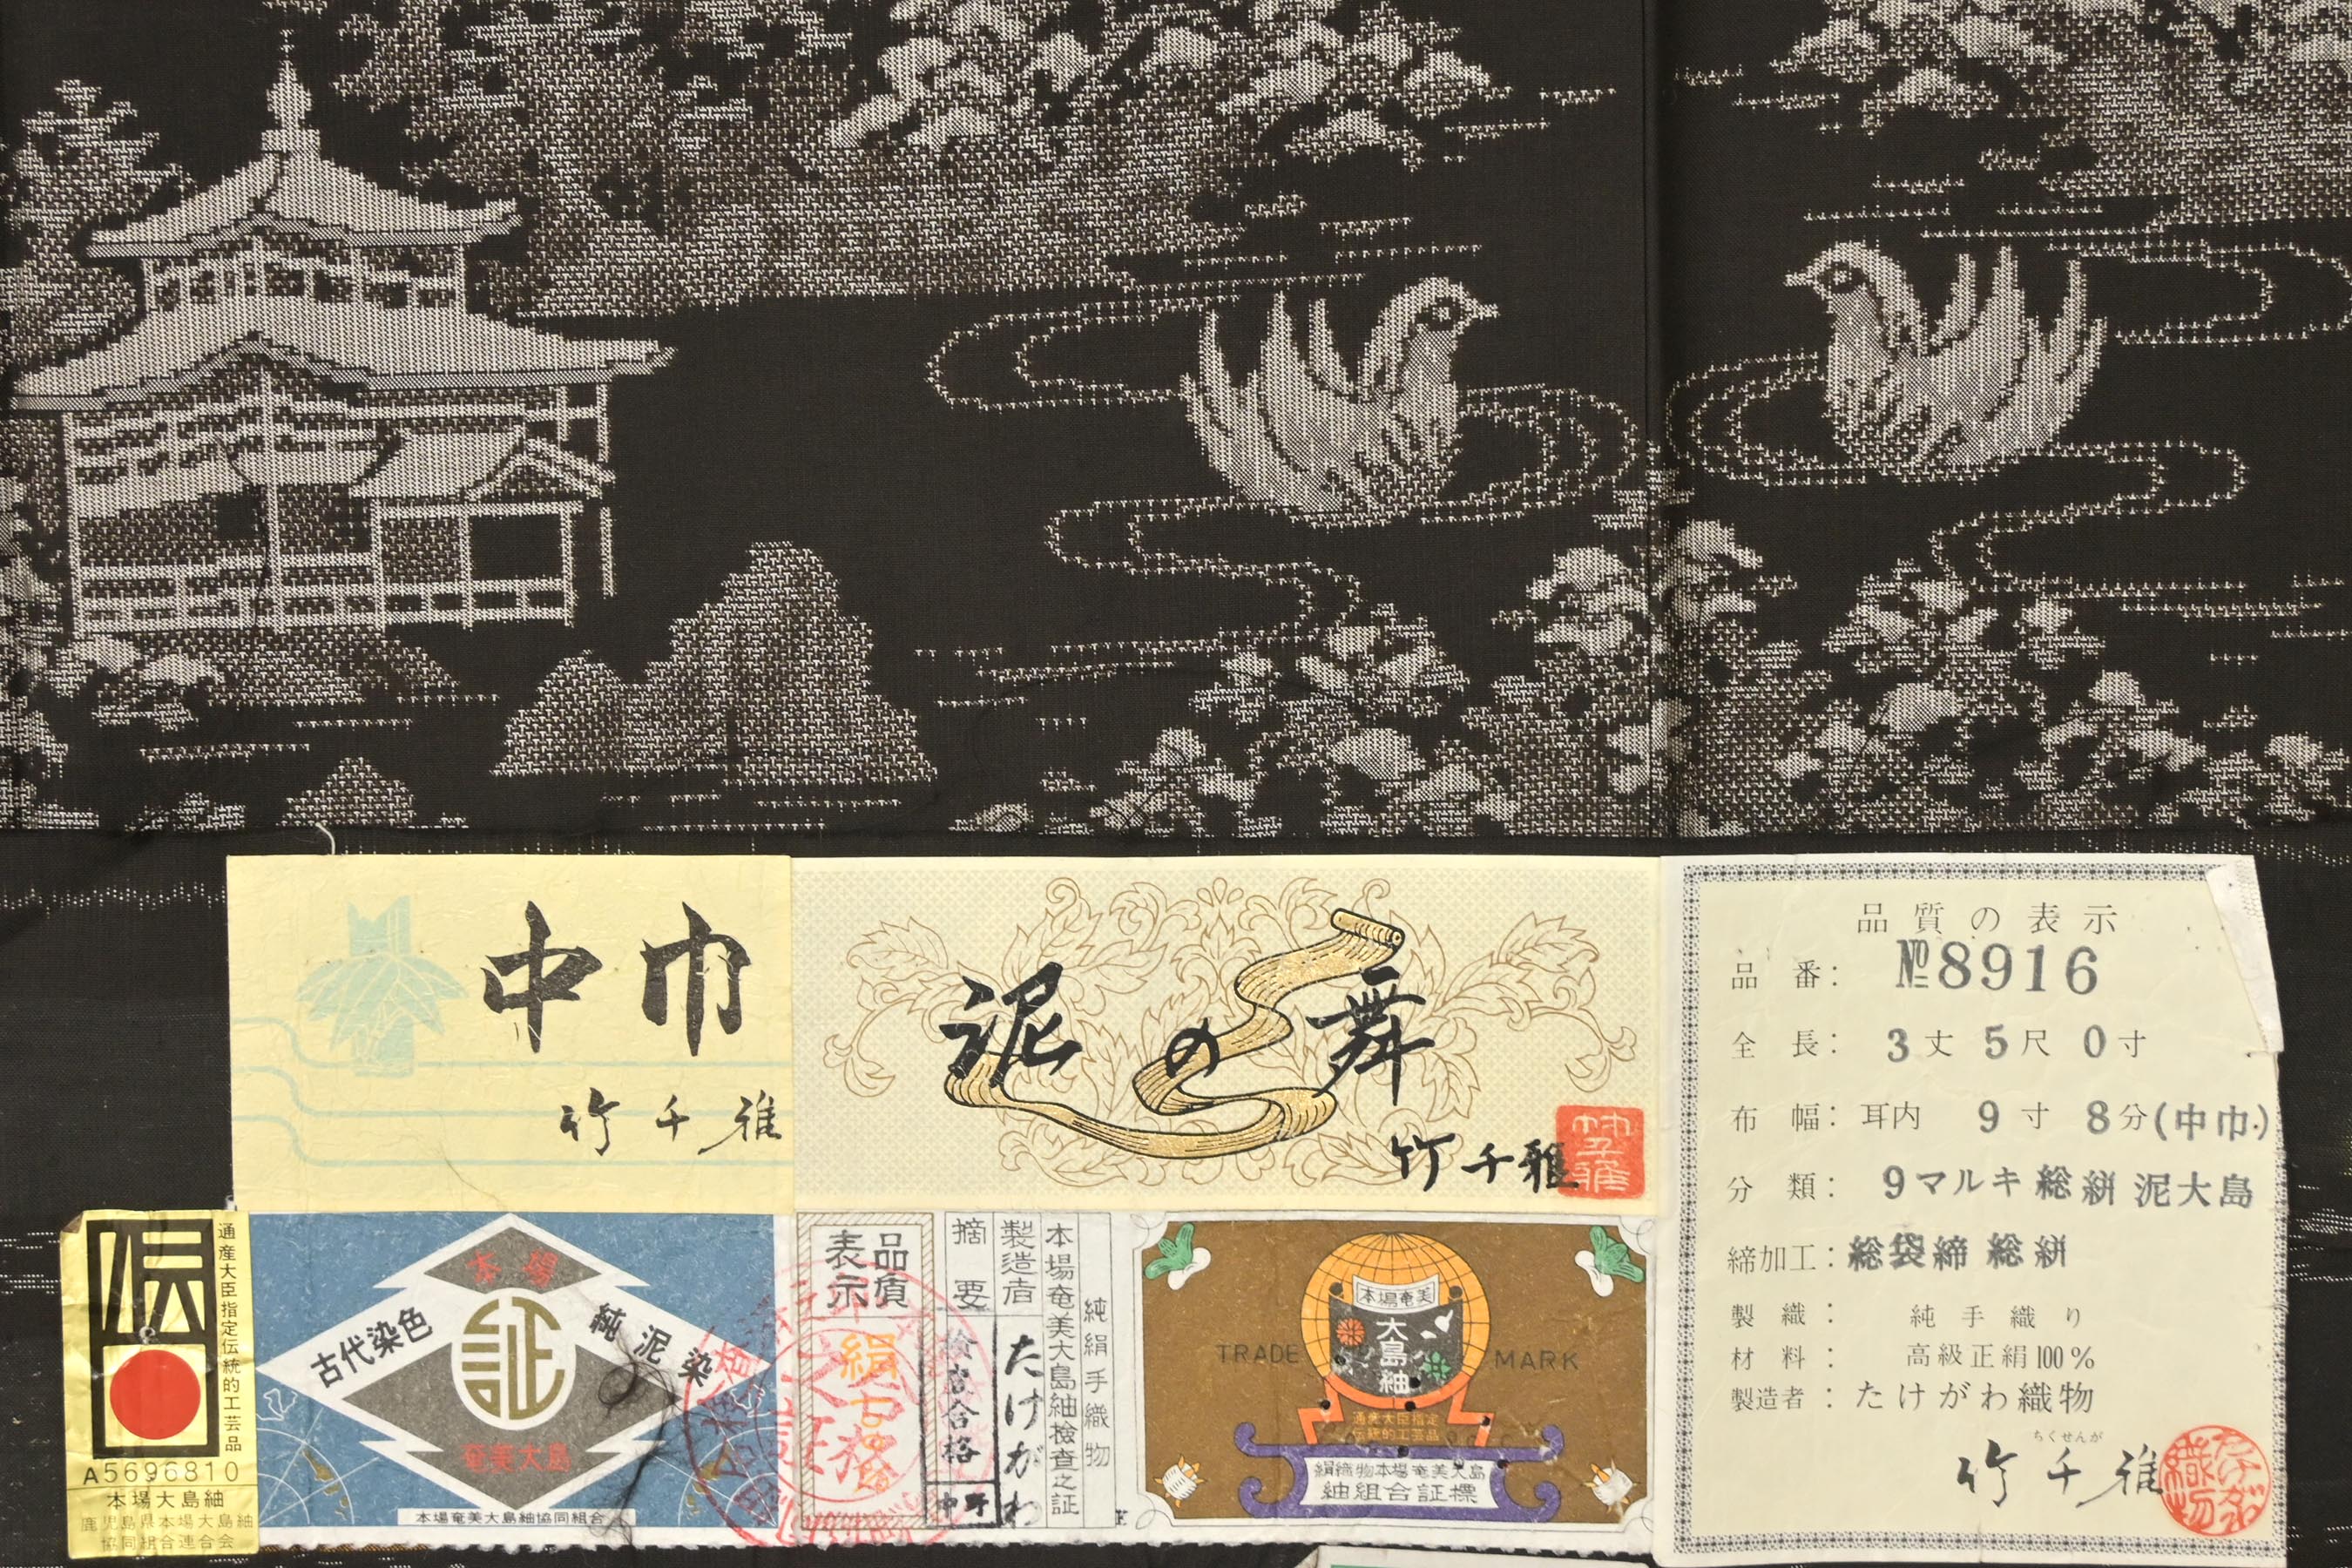 中巾
竹千雅
泥の舞
竹千雅
品質の表示
品番: №8916
全長: 3丈5尺0寸
布幅: 耳内 9寸8分(中巾)
分類: 9マルキ総絣泥大島
締加工: 総袋締総絣
製織: 純手織り
材料: 高級正絹100%
製造者: たけがわ織物
ちくせんが
竹千雅
伝
通産大臣指定伝統的工芸品
A5696810
本場大島紬
鹿児島県本場大島紬
協同組合連合会
本場
古代染色
純泥染
証
奄美大島
本場奄美大島紬協同組合
純絹手織物
本場奄美大島紬検査之証
製造者 たけがわ
摘要 検査合格
中野
品質表示
絹
本場奄美
大島紬
TRADE MARK
通産大臣指定
伝統的工芸品
絹織物本場奄美大島
紬組合証標